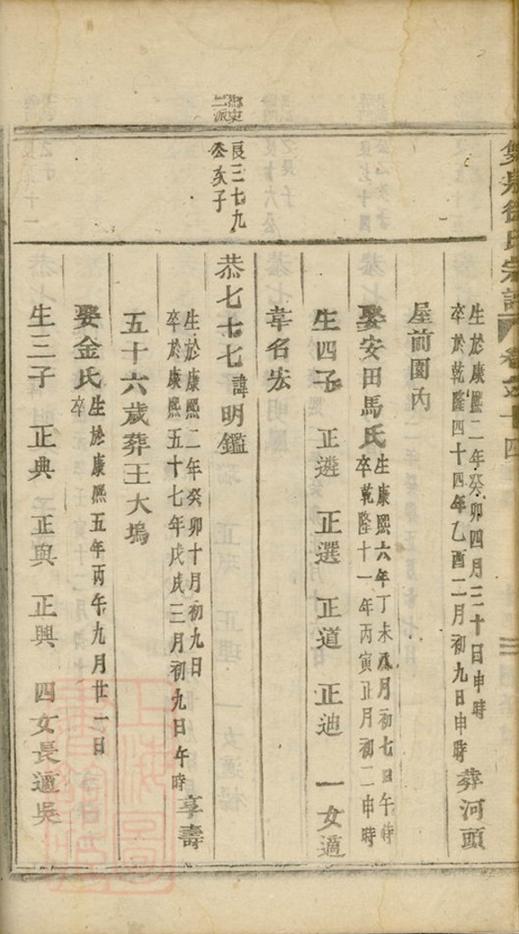 徐氏宗譜 卷之十四
生於康熙二年癸卯四月二十日申時
卒於乾隆四十四年乙酉二月初九日申時 葬河頭
屋前園內
娶安田馬氏 生康熙六年丁未 月初七日午時
卒乾隆十一年丙寅正月初二申時
生四子 正遴 正選 正道 正迪 一女適
韋名宏
長三七九
公次子
恭七十七 諱明鑑
生於康熙二年癸卯十月初九日
卒於康熙五十七年戊戌三月初九日午時 享壽
五十六歲葬王大塢
娶金氏 生於康熙五年丙午九月廿一日
卒
生三子 正典 正與 正興 四女長適吳